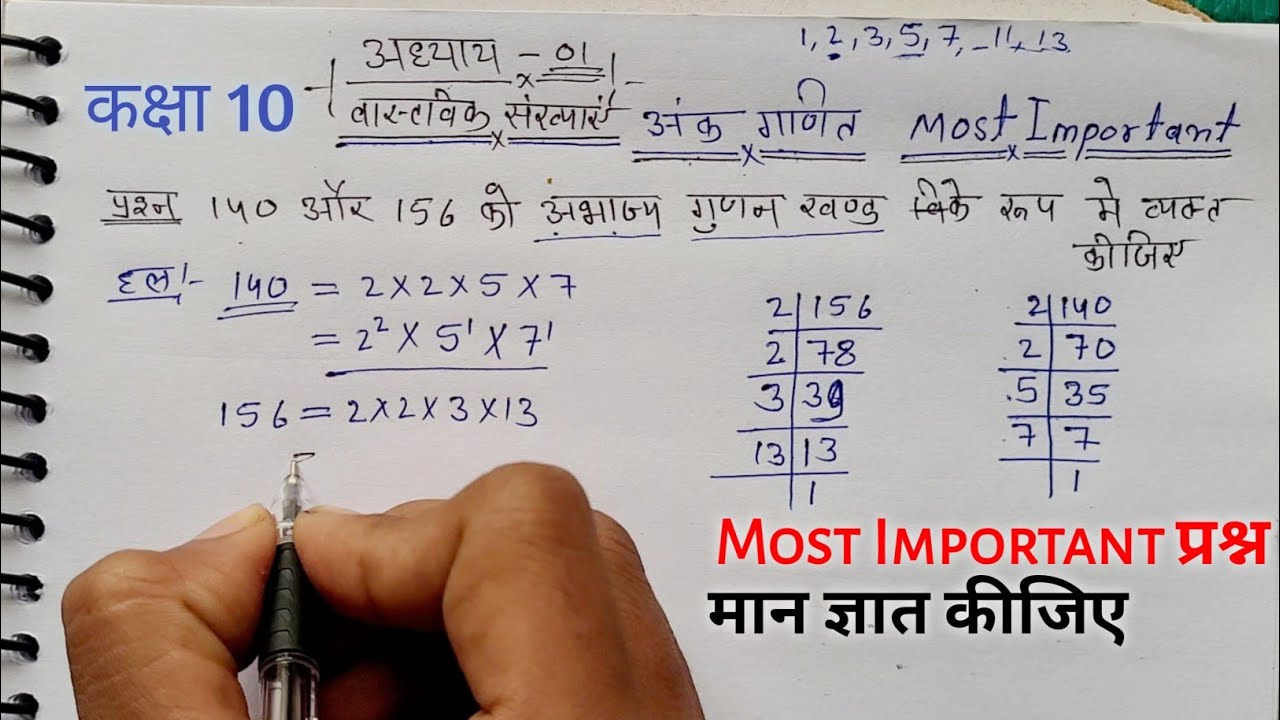 1, 2, 3, 5, 7, 11, 13
अध्याय - 01
कक्षा 10
वास्तविक संख्याएं अंक गणित Most Important
प्रश्न 140 और 156 को अभाज्य गुणन खण्ड के रूप मे व्यक्त
कीजिए
हल:- 140 = 2×2×5×7
= 2² × 5¹ × 7¹
156 = 2×2×3×13
2|156
2|78
3|39
13|13
1
2|140
2|70
5|35
7|7
1
Most Important प्रश्न
मान ज्ञात कीजिए